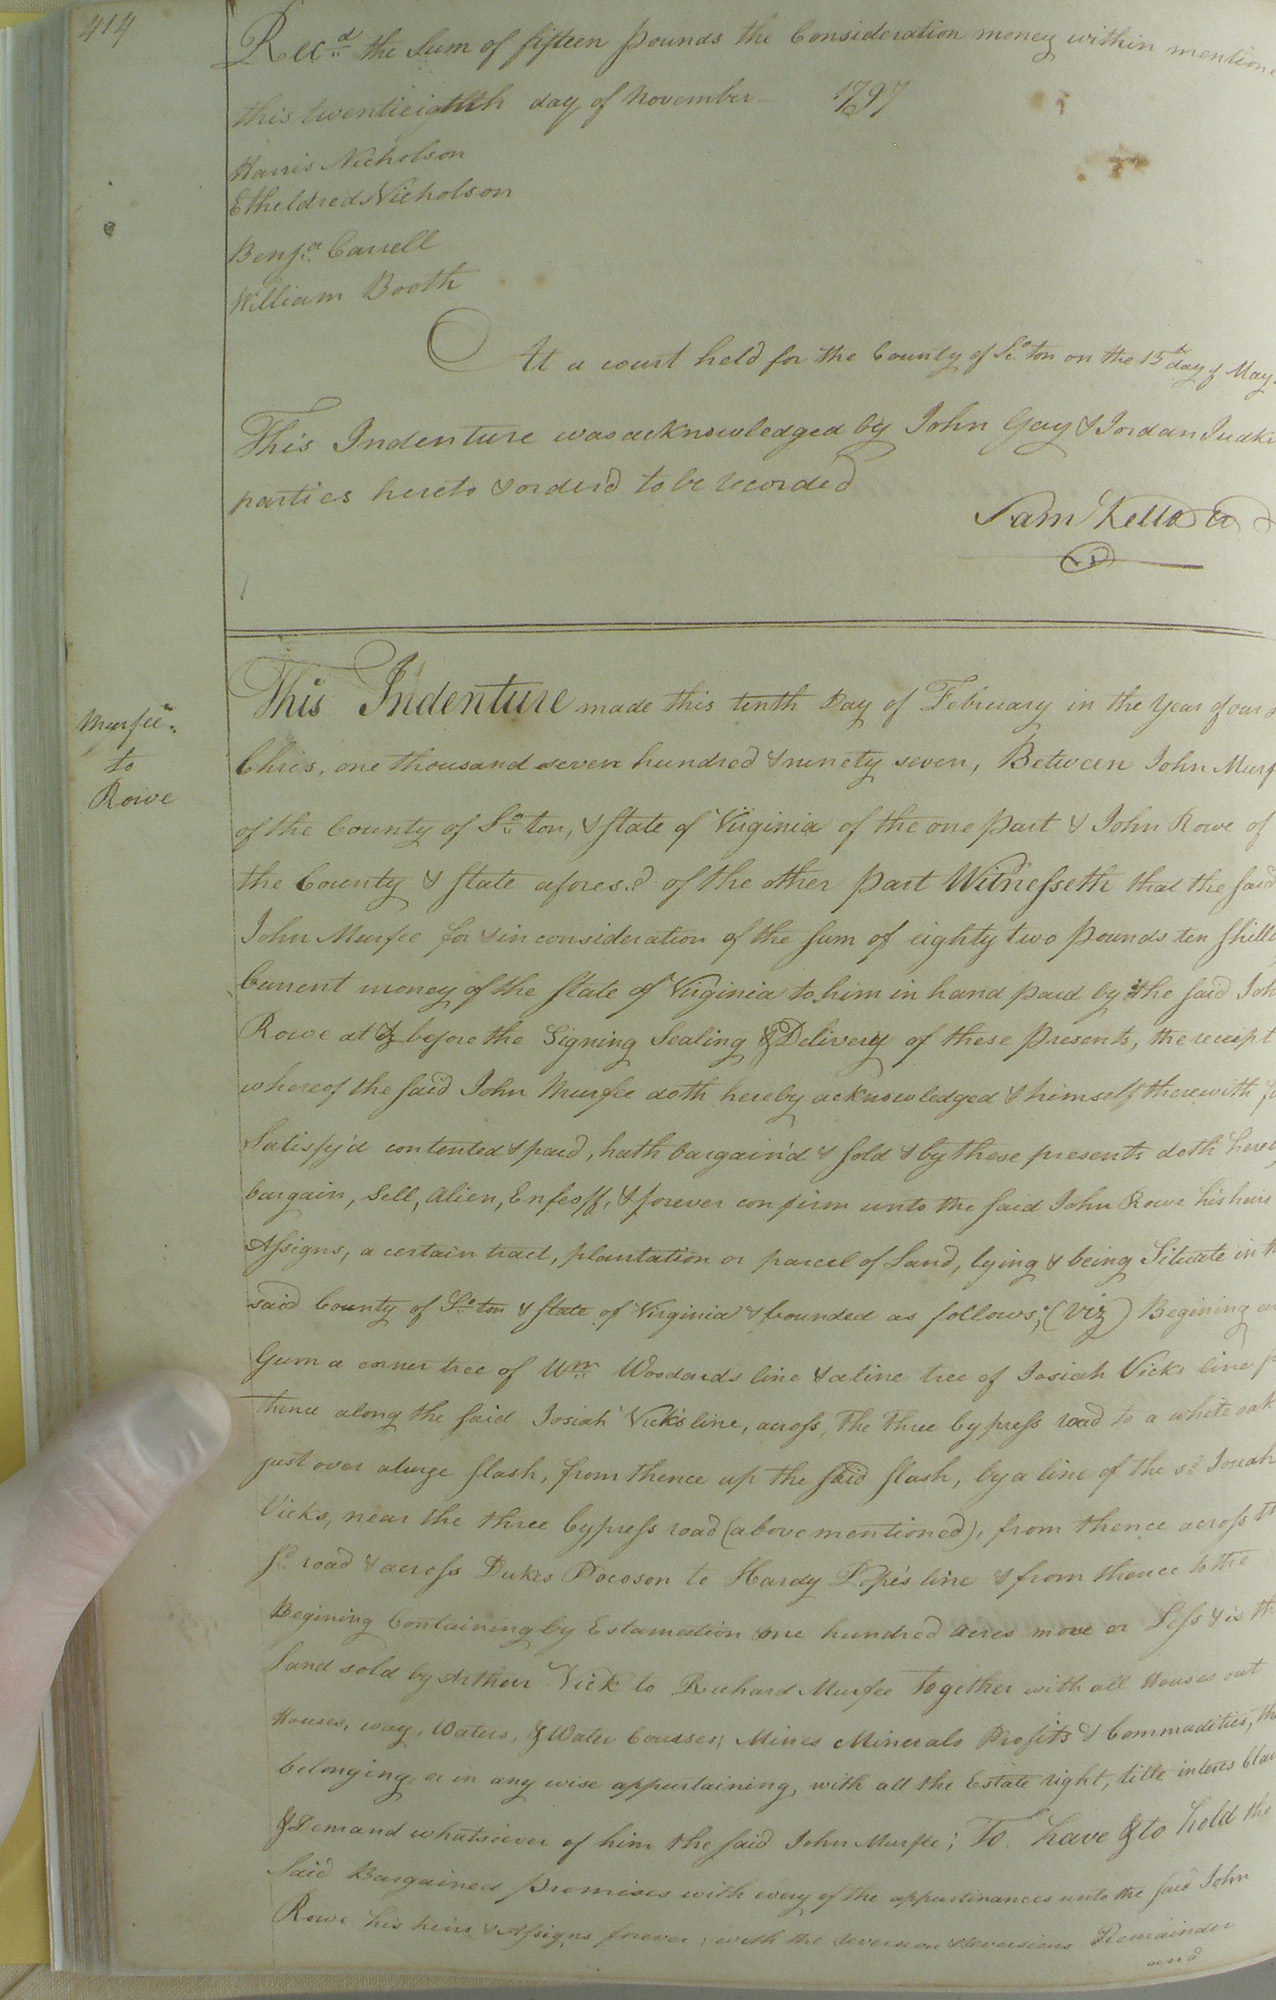 414
Rec.d the Sum of fifteen pounds the Consideration money within mentione
this twentieighth day of November 1797
Harris Nicholson
Etheldred Nicholson
Benja. Carrell
William Booth
At a court held for the County of So.ton on the 15th day of May
This Indenture was acknowledged by John Gay & Jordan Judki
parties hereto & orderd to be recorded
Sam Kello
This Indenture made this tenth Day of February in the Year of our
Murfee
to
Rowe
Chris, one thousand seven hundred & ninety seven, Between John Murf
of the County of So.ton, & State of Virginia of the one part & John Rowe of
the County & State afores.d of the other part Witnesseth that the said
John Murfee for & in consideration of the sum of eighty two pounds ten shill
Current money of the State of Virginia to him in hand paid by the said Joh
Rowe at & before the Signing Sealing & Delivery of these Presents, the receipt
whereof the said John Murfee doth hereby acknowledged & himself therewith
Satisfy'd contented & paid, hath bargain'd & sold & by these presents doth here
bargain, Sell, Alien, Enfeoff, & forever confirm unto the said John Rowe his heirs
Assigns, a certain tract, plantation or parcel of Land, lying & being Situate in th
said County of So.ton & State of Virginia & bounded as follows; (Viz) Begining
Gum a corner tree of Wm Woodards line & a line tree of Josiah Vicks line
thence along the said Josiah Vick's line, across, the three Cypress road to a white oak
just over a large slash, from thence up the said slash, by a line of the sd Josiah
Vicks, near the three Cypress road (above mentioned), from thence across th
sd road & across Dukes Pocoson to Hardy Pope's line & from thence to the
Begining Containing by Estamation one hundred acres more or Less & is th
Land sold by Arthur Vick to Richard Murfee together with all Houses out
Houses, way, Waters, & Water Courses; Mines Minerals Profits & Commodities, th
belonging or in any wise appurtaining, with all the Estate right, title interes Cla
& Demand whatsiever of him the said John Murfee; To have & to hold the
Said Bargained Premises with every of the appurtinances unto the said John
Rowe his heirs & Assigns forever, with the reversion & reversions Remainder
and